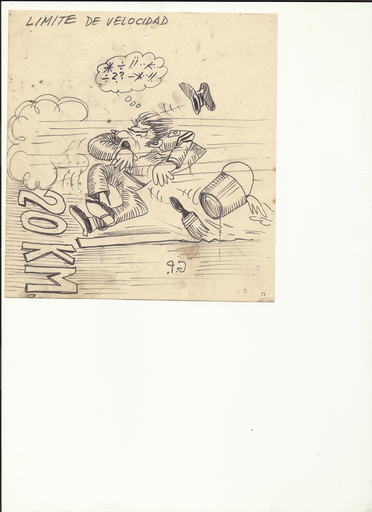 LIMITE DE VELOCIDAD
20 KM.